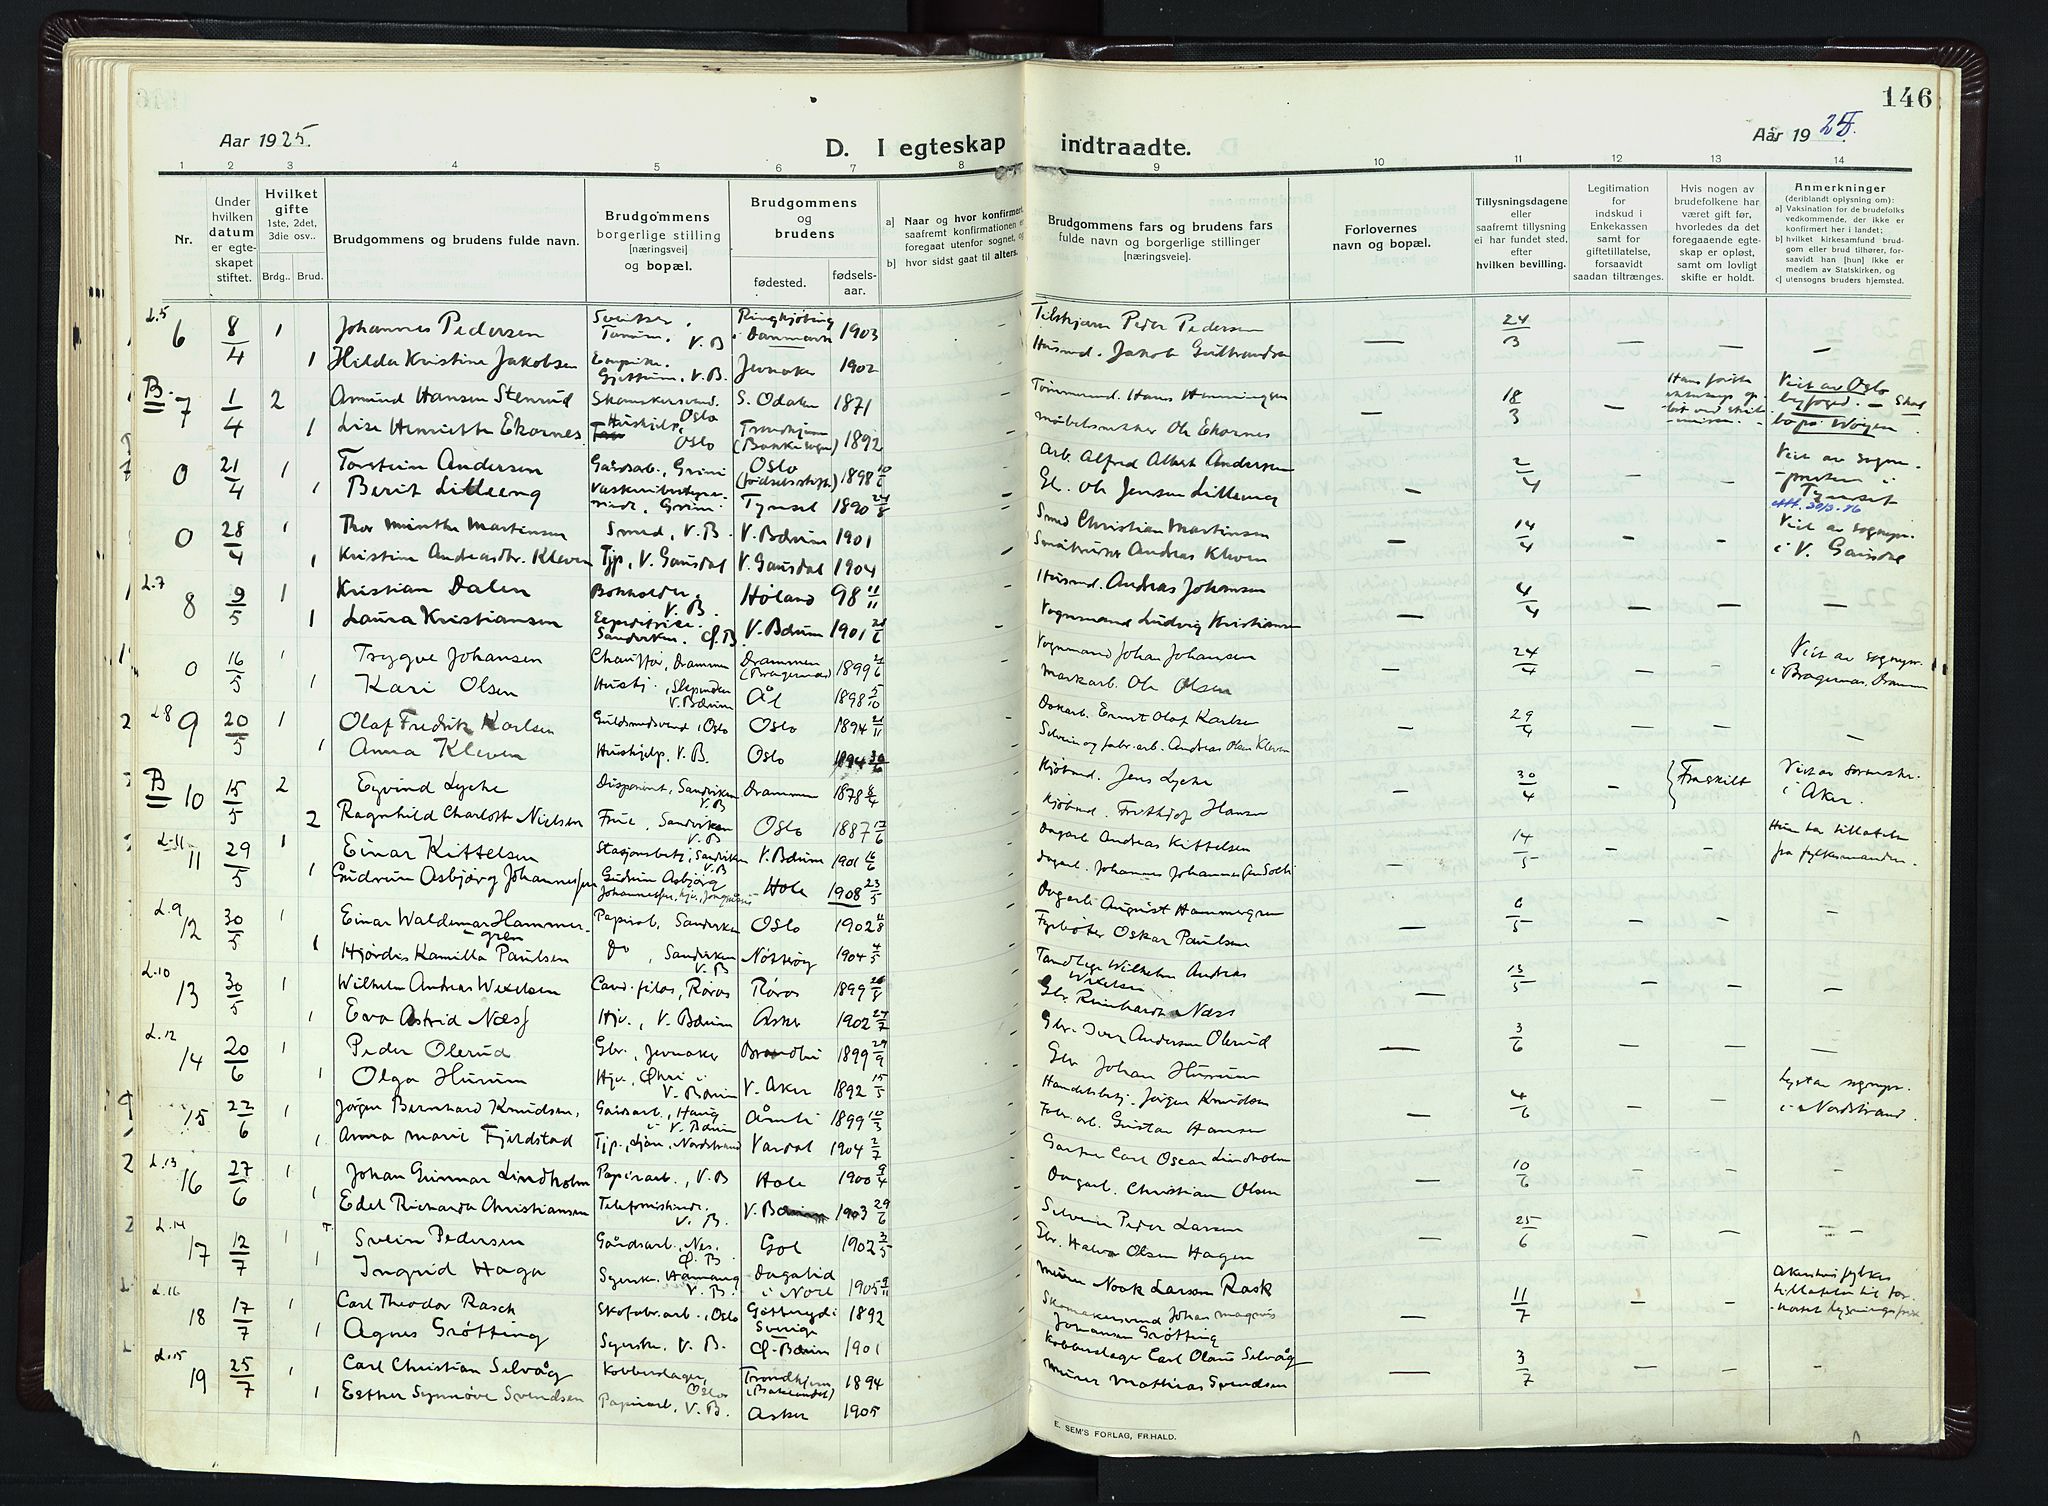 146
Aar 1925.
D. I egteskap indtraadte.
Aar 1925.
1 2 3 4 5 6 7 8 9 10 11 12 13 14
Nr.
Under hvilken datum er egteskapet stiftet.
Hvilket gifte 1ste, 2det, 3die osv..
Brdg.. Brud.
Brudgommens og brudens fulde navn.
Brudgommens borgerlige stilling [næringsvei] og bopæl.
Brudgommens og brudens
fødested. fødselsaar.
a) Naar og hvor konfirmert, saafremt konfirmationen er foregaat utenfor sognet, og
b) hvor sidst gaat til alters.
Brudgommens fars og brudens fars fulde navn og borgerlige stillinger [næringsveie].
Forlovernes navn og bopæl.
Tillysningsdagene eller saafremt tillysning ei har fundet sted, efter hvilken bevilling.
Legitimation for indskud i Enkekassen samt for giftetillatelse, forsaavidt saadan tiltrænges.
Hvis nogen av brudefolkene har været gift før, hvorledes da det foregaaende egteskap er opløst, samt om lovligt skifte er holdt.
Anmerkninger (deriblandt oplysning om):
a) Vaksination for de brudefolks vedkommende, der ikke er konfirmert her i landet;
b) hvilket kirkesamfund brudgom eller brud tilhører, forsaavidt han [hun] ikke er medlem av Statskirken, og
c) utensogns bruders hjemsted.
L.5 6 8/4 1 Johannes Pedersen Sveitser, Tanum, V.B Ringkjøbing i Danmark 1903 Peder Pedersen 24/3 — — —
1 Hilda Kristine Jakobsen Gjettum, V.B. Jevnaker 1902 Husmd. Jakob Gulbrandsen
B. 7 1/4 2 Amund Hansen Stenrud Skomakersvend. Oslo S. Odalen 1871 Tømmermd. Hans Henningsen 18/3 — Viet av Oslo byfoged.
1 Lise Henriette Ekornes Hushjelp, Oslo Trondhjem 1892 Møbelsnekker Ole Ekornes
0 21/4 1 Torstein Andersen Gårdsarb., Grini Oslo (fødselsstift) 1898 10/6 Arb. Alfred Albert Andersen 2/4 — — Viet av sogne-presten i Tynset
1 Berit Lilleeng Grini Tynset 1890 24/8 Gbr. Ole Jensen Lilleeng
0 28/4 1 Thor Minthe Martinsen Smed, V.B. V. Bærum 1901 Smed Christian Martinsen 14/4 — — Viet av sognepr. i V. Gausdal
1 Kristine Andreasdtr. Kleven Tjp, V. Gausdal V. Gausdal 1904 Småbruker Andreas Kleven
L.7 8 9/5 1 Kristian Dalen Bokholder, V.B. Høland 98 11/11 Husmd. Andreas Johansen 4/4 — — —
1 Laura Kristiansen Sandviken. Ø.B. V. Bærum 1901 Vognmand Ludvig Kristiansen
0 16/5 1 Trygve Johansen Chauffør, Drammen Drammen (Bragernes) 1899 Vognmand Johan Johansen 24/4 — — Viet av sognepr. i Bragernes, Drammen
1 Kari Olsen Hushj., Slependen V. Bærum Ål 1898 5/10 Markarb. Ole Olsen
L.8 9 20/5 1 Olaf Fredrik Karlsen Guldsmedsvend, Oslo Oslo 1894 21/11 Ernst Olaf Karlsen 29/4 — — —
1 Anna Kleven Hushjelp, V.B. Oslo 1894 30/6 Andreas Olsen Kleven
B 10 15/5 2 Eyvind Lyche Disponent, Sandviken V.B Drammen 1878 8/4 Kjøbmd. Jens Lyche 30/4 — Fraskilt i Aker.
2 Ragnhild Charlotte Nielsen Frue, Sandviken V.B Oslo 1887 17/6 Kjøbmd. Frithjof Hansen
L.11 11 29/5 1 Einar Kittelsen Stasjonsbetj., Sandviken V.B V. Bærum 1901 16/6 Dagarb. Andreas Kittelsen 14/5 — — Hun har tillatelse fra fylkesmanden.
1 Gudrun Asbjørg Johannessen Gudrun Asbjørg Johannessen, hjv., Hole 1908 23/5 Dagarb. Johannes Johannessen
L.9 12 30/5 1 Einar Waldemar Hammergren Papirarb, Sandviken Oslo 1902 11/8 Dagarb. August Hammergren 6/5 — — —
1 Hjørdis Kamilla Paulsen Do, Sandviken V.B Nøtterøy 1904 4/5 Fyrbøter Oskar Paulsen
L.10 13 30/5 1 Wilhelm Andreas Wexelsen Cand. filos, Røros Røros 1899 Tandlæge Wilhelm Andreas Wexelsen 13/5 — — —
1 Eva Astrid Næss Hjv., V. Bærum Asker 1902 27/7 Gbr. Reinhardt Næss
L.12 14 20/6 1 Peder Olerud Gbr., Jevnaker Brandbu 1899 29/9 Gbr. Iver Andersen Olerud 3/6 — — —
1 Olga Hurum Hjv., V. Bærum V. Aker 1892 15/5 Gbr Johan Hurum
15 22/6 1 Jørgen Bernhard Knudsen, Gårdsarb., Haug i V. Bærum Åmli 1899 10/3 Handelsbetj. Jørgen Knudsen 4/6 — — Lyst av sognepr. i Nordstrand
1 Anna Marie Fjeldstad Tjp., Ljan, Nordstrand Vardal 1904 2/7 Fabr. arb. Gustav Hansen
L.13 16 27/6 1 Johan Gunnar Lindholm Papirarb., V.B Hole 1900 9/4 Gartner Carl Oscar Lindholm 10/6 — — —
1 Edel Richarda Christiansen Telefonistinde, V.B. V. Bærum 1903 29/6 Dagarb. Christian Olsen
L.14 17 12/7 1 Svein Pedersen Gårdsarb., Nes. Ø.B Gol 1902 3/5 Selveier Peder Larsen 25/6 — — —
1 Ingrid Haga Syerske. Hamang V.B. Dagalid i Nore 1905 9/11 Gbr. Halvor Olsen Hagen
L.16 18 17/7 1 Carl Theodor Rasck Skofabr.arb., Oslo Sverige 1892 Murer Noak Larsen Rask 11/7 — — Akershus fylkes tillatelse til forkortet lysningsfrist.
1 Agnes Grøtting Syerske, V.B. Ø. Bærum 1901 Skomakersvend Johan Magnus Johansen Grøtting
L.15 19 25/7 1 Carl Christian Selvåg Kobberslager, Oslo Trondhjem (Bakklandet) 1894 Kobberslager Carl Olaus Selvåg 3/7 — — —
1 Esther Synnøve Svendsen Papirarb, V.B. Asker 1905 Murer Mathias Svendsen
E. SEM'S FORLAG, FR.HALD.